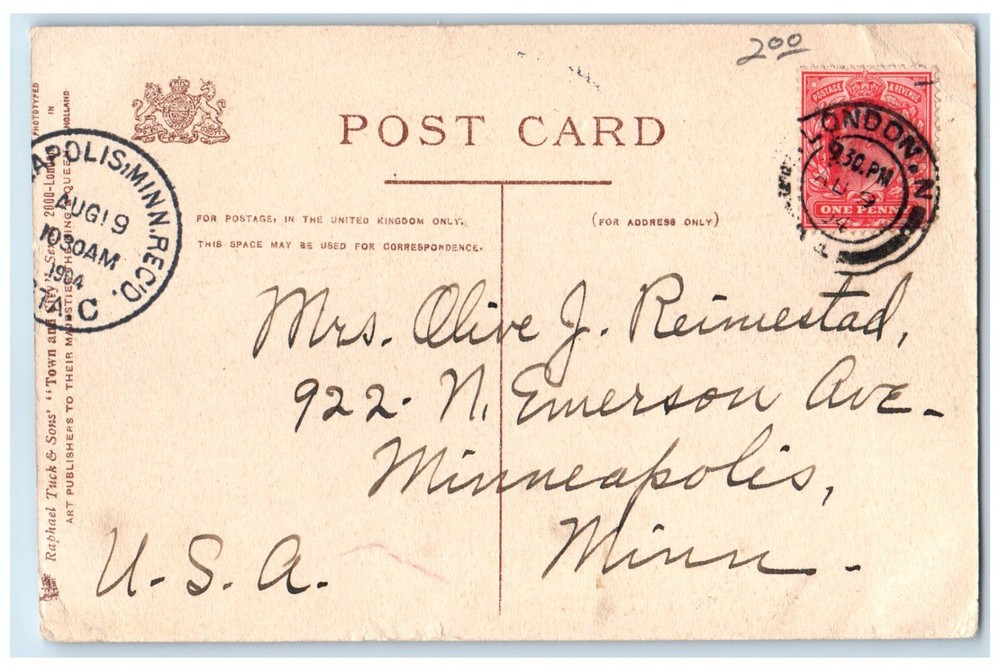 200
POSTAGE & REVENUE
ONE PENNY
LONDON. N
9.30. PM
AU 9
04
POST CARD
FOR POSTAGE, IN THE UNITED KINGDOM ONLY,
THIS SPACE MAY BE USED FOR CORRESPONDENCE.
(FOR ADDRESS ONLY)
APOLIS, MINN. REC'D.
AUG 19
1030AM
1904
STA. C
Mrs. Olive J. Reimestad,
922. N. Emerson Ave-
Minneapolis,
Minn-.
U.S.A.
Raphael Tuck & Sons' "Town and City" Series 2000-London
ART PUBLISHERS TO THEIR MAJESTIES THE KING & QUEEN
PHOTOTYPED
IN
HOLLAND